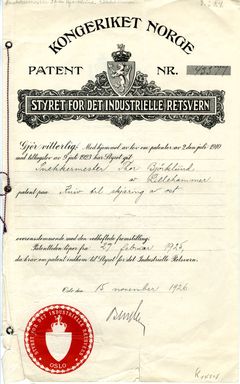 KONGERIKET NORGE
PATENT NR. 43377
STYRET FOR DET INDUSTRIELLE RETSVERN
Gjör vitterlig: Med hjemmel av lov om patenter av 2 den juli 1910
med tilleglov av juli 1923 har Styret git
Snekkermester Thor Björklund
av Lillehammer
patent paa Kniv til skjæring av ost
overensstemmende med den vedheftede fremstilling.
Patenttiden löper fra 27 februar 1925,
da krav om patent indkom til Styret for det Industrielle Retsvern.
Oslo den 15 november 1926
STYRET FOR DET INDUSTRIELLE RETSVERN
OSLO